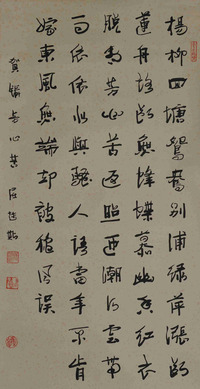 楊柳回塘鴛鴦別浦綠萍漲斷
蓮舟路斷無蜂蝶慕幽香紅衣
脫盡芳心苦返照迎潮行雲帶
雨依依似與騷人語當年不肯
嫁東風無端卻被秋風誤
賀鑄芳心苦